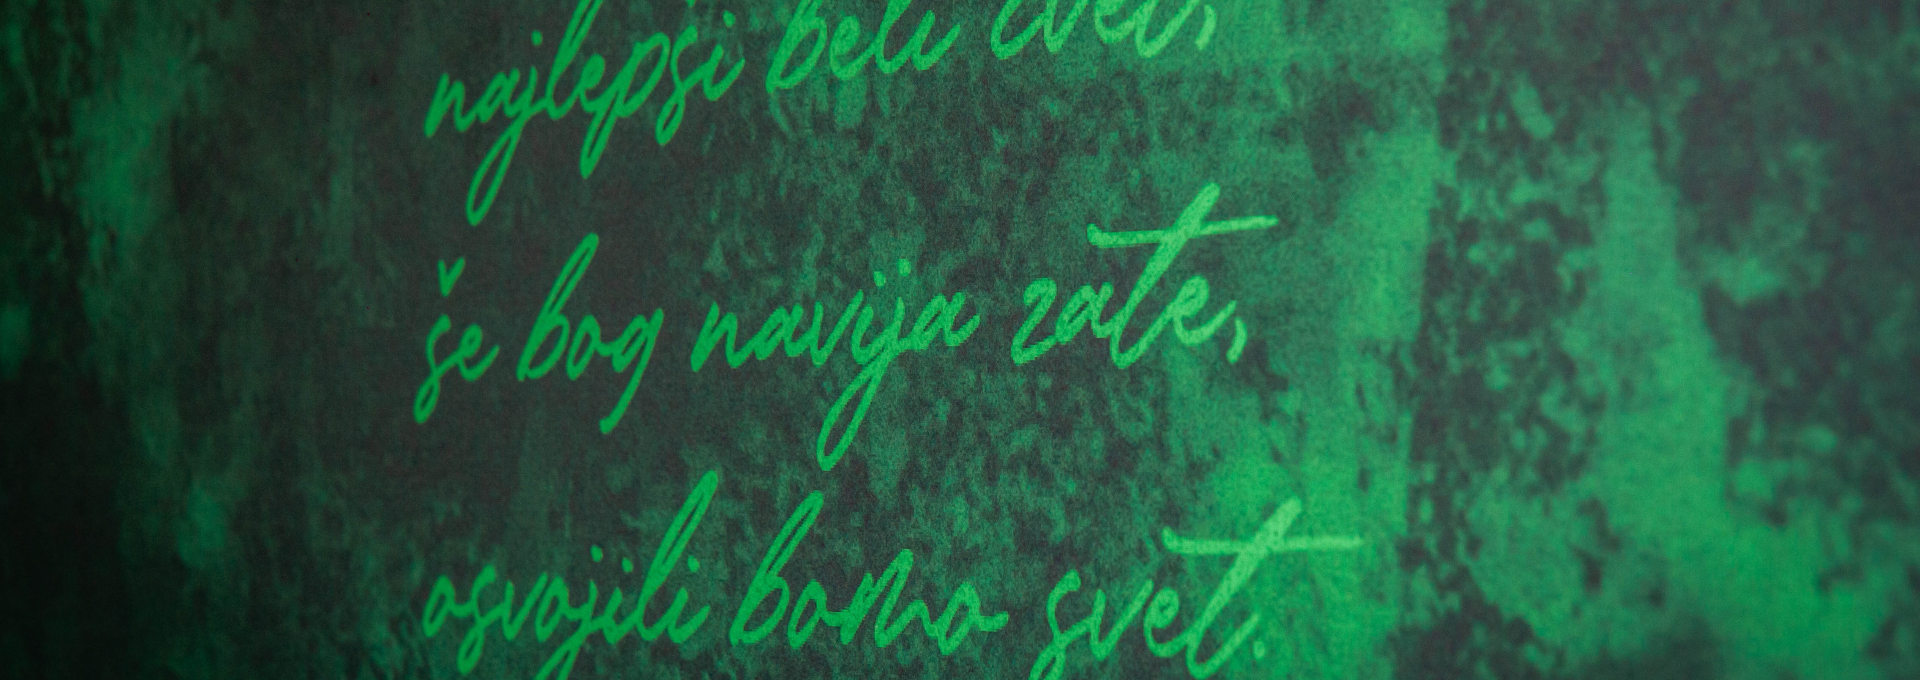 najlepši beli cvet,
še bog navija zate,
osvojili bomo svet.